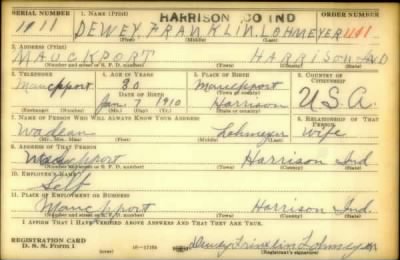 HARRISON CO IND
SERIAL NUMBER 1. NAME (Print) ORDER NUMBER
11 DEWEY FRANKLIN LOHMEYER 1101
(First) (Middle) (Last)
2. ADDRESS (Print)
MAUCKPORT HARRISON IND
(Number and street or R. F. D. number) (Town) (County) (State)
3. TELEPHONE 4. AGE IN YEARS 5. PLACE OF BIRTH 6. COUNTRY OF CITIZENSHIP
Mauckport 30 Mauckport
DATE OF BIRTH (Town or county)
Jan. 7 1910 Harrison U.S.A.
(Exchange) (Number) (Mo.) (Day) (Yr.) (State or country)
7. NAME OF PERSON WHO WILL ALWAYS KNOW YOUR ADDRESS 8. RELATIONSHIP OF THAT PERSON
Lohmeyer Wife
(Mr., Mrs., Miss) (First) (Middle) (Last)
9. ADDRESS OF THAT PERSON
Mauckport Harrison Ind
(Number and street or R. F. D. number) (Town) (County) (State)
10. EMPLOYER'S NAME
Self
11. PLACE OF EMPLOYMENT OR BUSINESS
Mauckport Harrison Ind.
(Number and street or R. F. D. number) (Town) (County) (State)
I AFFIRM THAT I HAVE VERIFIED ABOVE ANSWERS AND THAT THEY ARE TRUE.
REGISTRATION CARD
D. S. S. Form 1 Dewey Franklin Lohmeyer
(Registrant's signature)